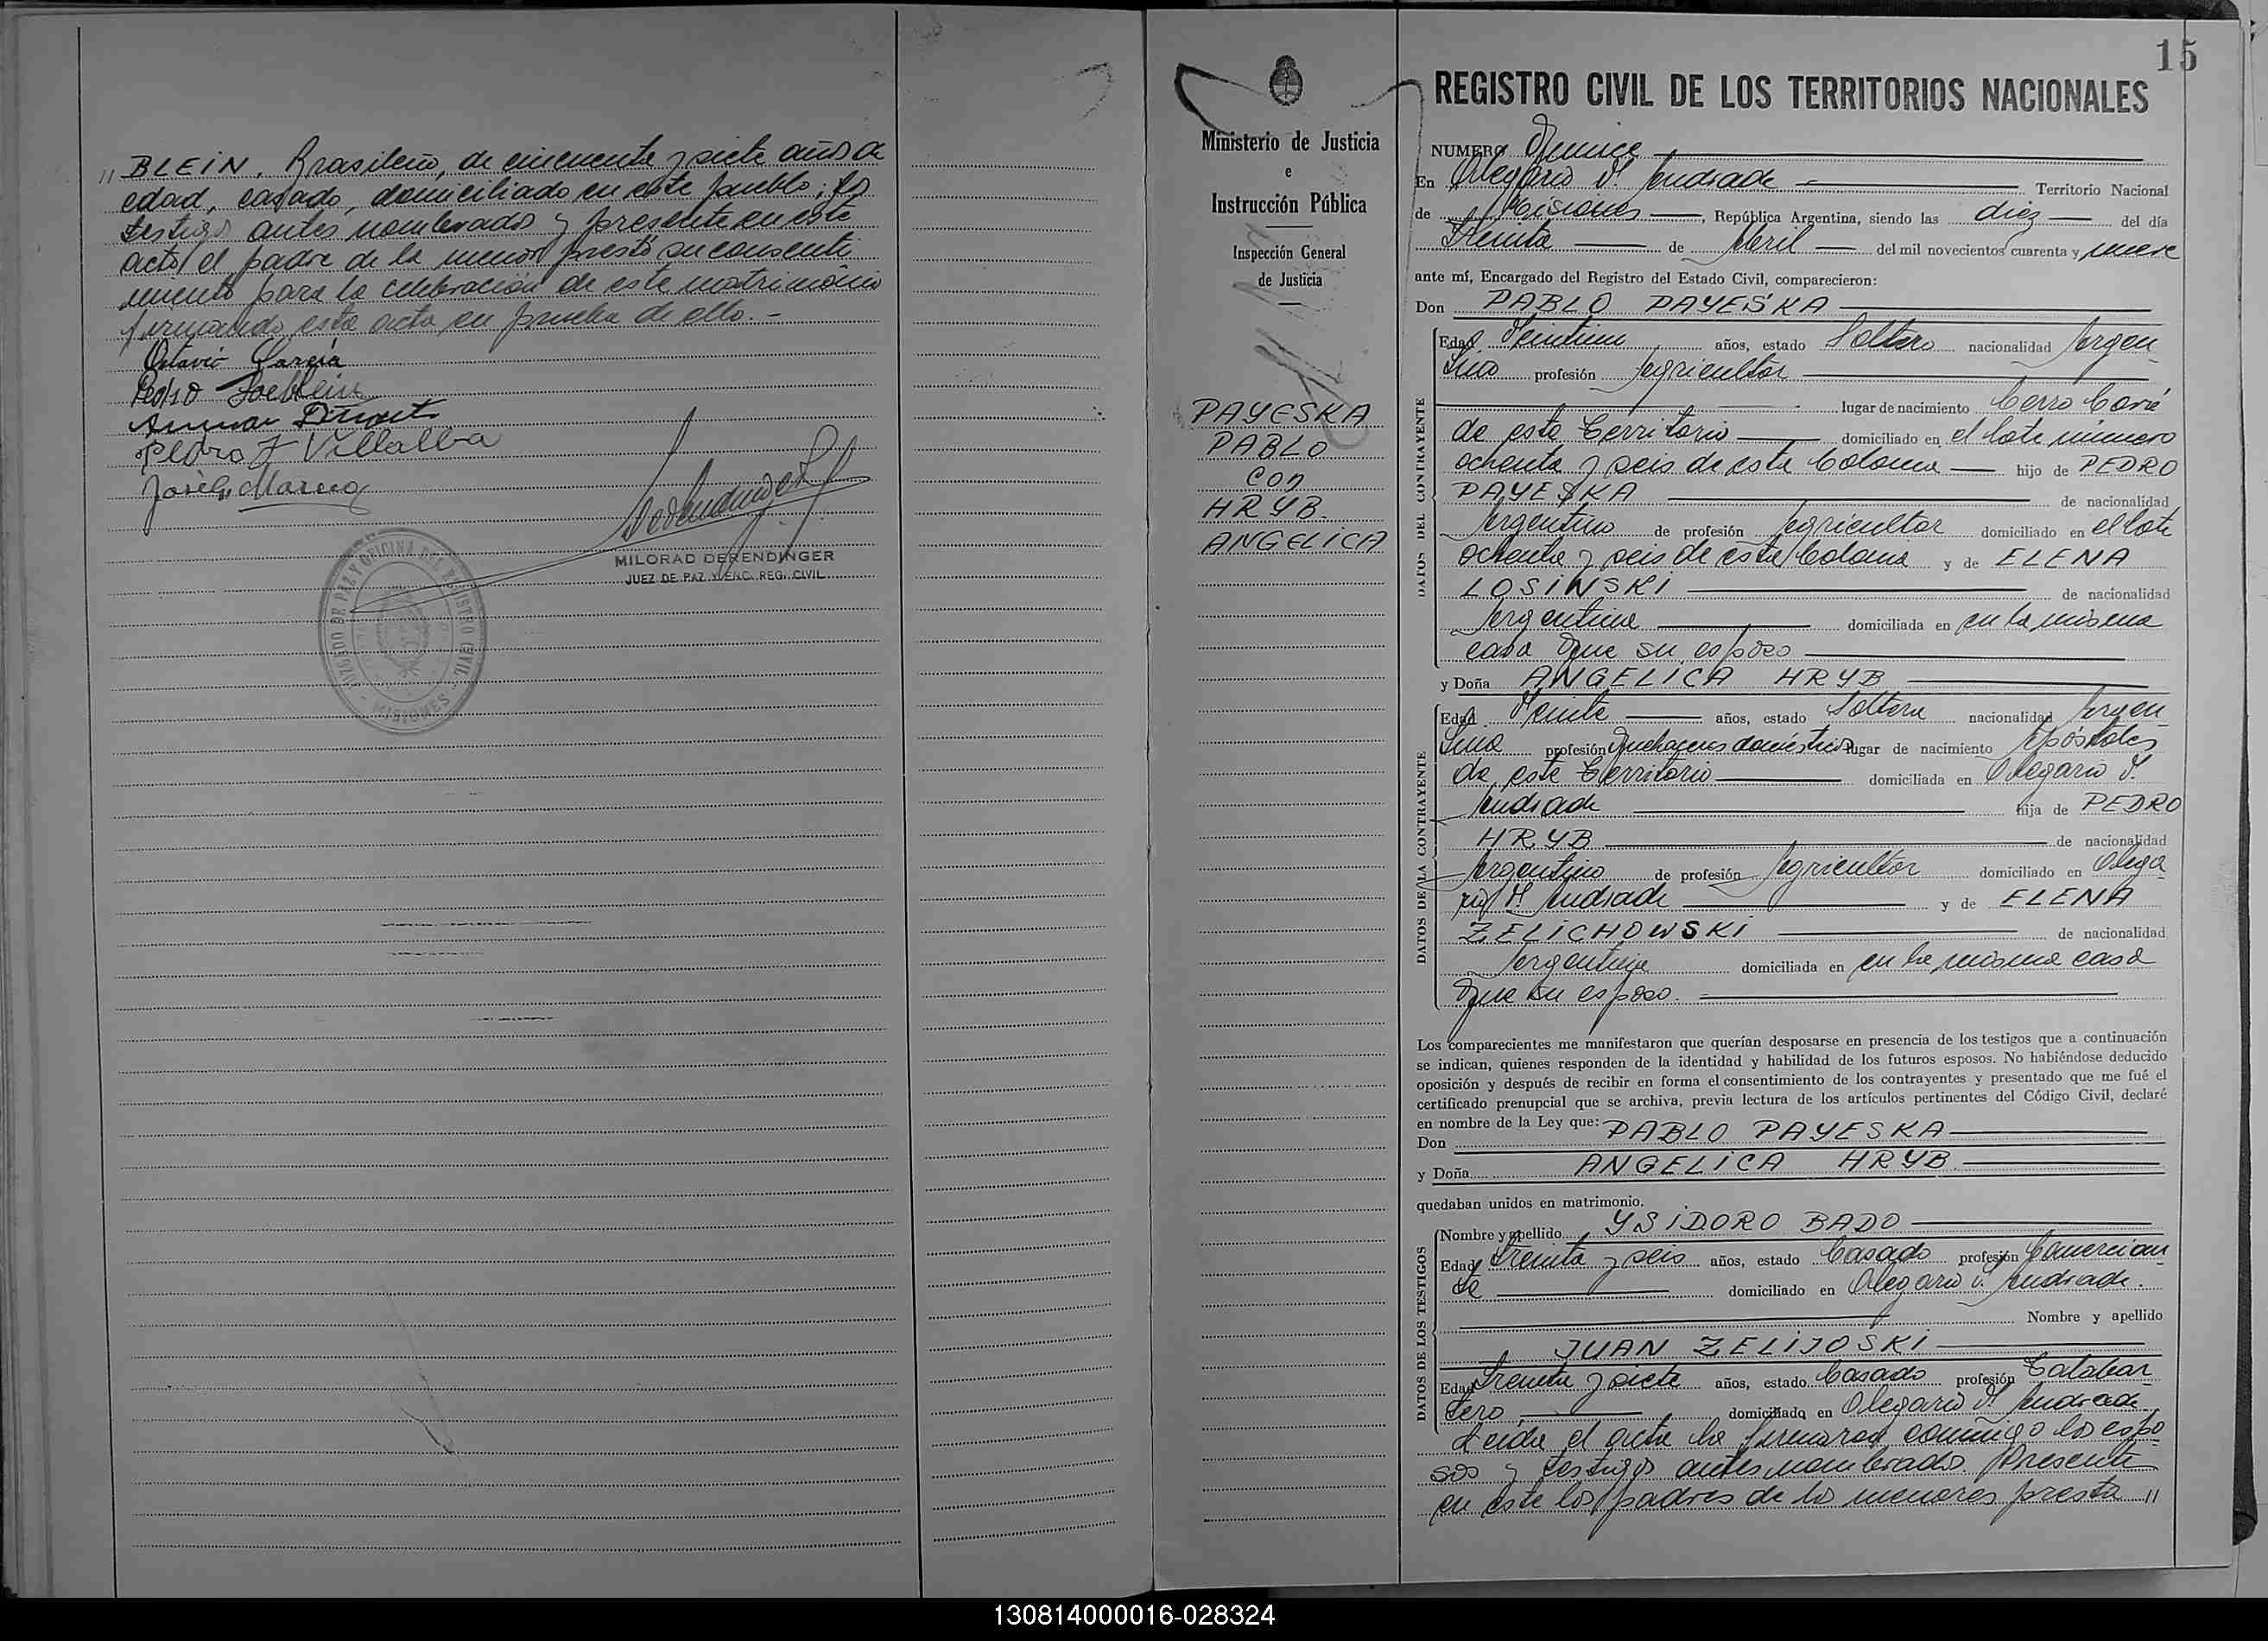 " BLEIN. Brasileño, de cincuenta y siete años de
edad, casado, domiciliado en este pueblo; los
testigos antes nombrados y presente en este
acto el padre de la menor prestó su consenti
miento para la celebración de este matrimonio
firmando esta acta en prueba de ello.-
Octavio García
Pedro Loeblein
Pedro J Villalba
José
MILORAD DERENDINGER
JUEZ DE PAZ Y ENC. REG. CIVIL
JUZGADO DE PAZ Y OFICINA DEL REGISTRO CIVIL - MISIONES -
Ministerio de Justicia
e
Instrucción Pública
Inspección General
de Justicia
PAYESKA
PABLO
con
HRYB
ANGELICA
15
REGISTRO CIVIL DE LOS TERRITORIOS NACIONALES
NUMERO Quince
En Olegario V. Andrade Territorio Nacional
de Misiones, República Argentina, siendo las diez del día
Treinta de Abril del mil novecientos cuarenta y nueve
ante mí, Encargado del Registro del Estado Civil, comparecieron:
Don PABLO PAYESKA
DATOS DEL CONTRAYENTE
Edad Veintiun años, estado Soltero nacionalidad Argen
tino profesión Agricultor
lugar de nacimiento Cerro Corá
de este Territorio domiciliado en el lote número
ochenta y seis de esta Colonia hijo de PEDRO
PAYESKA de nacionalidad
Argentino de profesión Agricultor domiciliado en el lote
ochenta y seis de esta Colonia y de ELENA
LOSINSKI de nacionalidad
Argentina domiciliada en en la misma
casa que su esposo
y Doña ANGELICA HRYB
DATOS DE LA CONTRAYENTE
Edad Veinte años, estado Soltera nacionalidad Argen
tina profesión Quehaceres domésticos lugar de nacimiento Apóstoles
de este Territorio domiciliada en Olegario V.
Andrade hija de PEDRO
HRYB de nacionalidad
Argentino de profesión Agricultor domiciliado en Olega
rio V. Andrade y de ELENA
ZELICHOWSKI de nacionalidad
Argentina domiciliada en en la misma casa
que su esposo.
Los comparecientes me manifestaron que querían desposarse en presencia de los testigos que a continuación
se indican, quienes responden de la identidad y habilidad de los futuros esposos. No habiéndose deducido
oposición y después de recibir en forma el consentimiento de los contrayentes y presentado que me fué el
certificado prenupcial que se archiva, previa lectura de los artículos pertinentes del Código Civil, declaré
en nombre de la Ley que:
Don PABLO PAYESKA
y Doña ANGELICA HRYB
quedaban unidos en matrimonio.
DATOS DE LOS TESTIGOS
Nombre y apellido YSIDORO BADO
Edad Treinta y seis años, estado Casado profesión Comercian
te domiciliado en Olegario V. Andrade.
Nombre y apellido
JUAN ZELIJOSKI
Edad Treinta y siete años, estado Casado profesión Talabar
tero domiciliado en Olegario V. Andrade.
Leida el acta la firmaron conmigo los espo
sos y testigos antes nombrados. Presente
en este los padres de los menores presta "
130814000016-028324